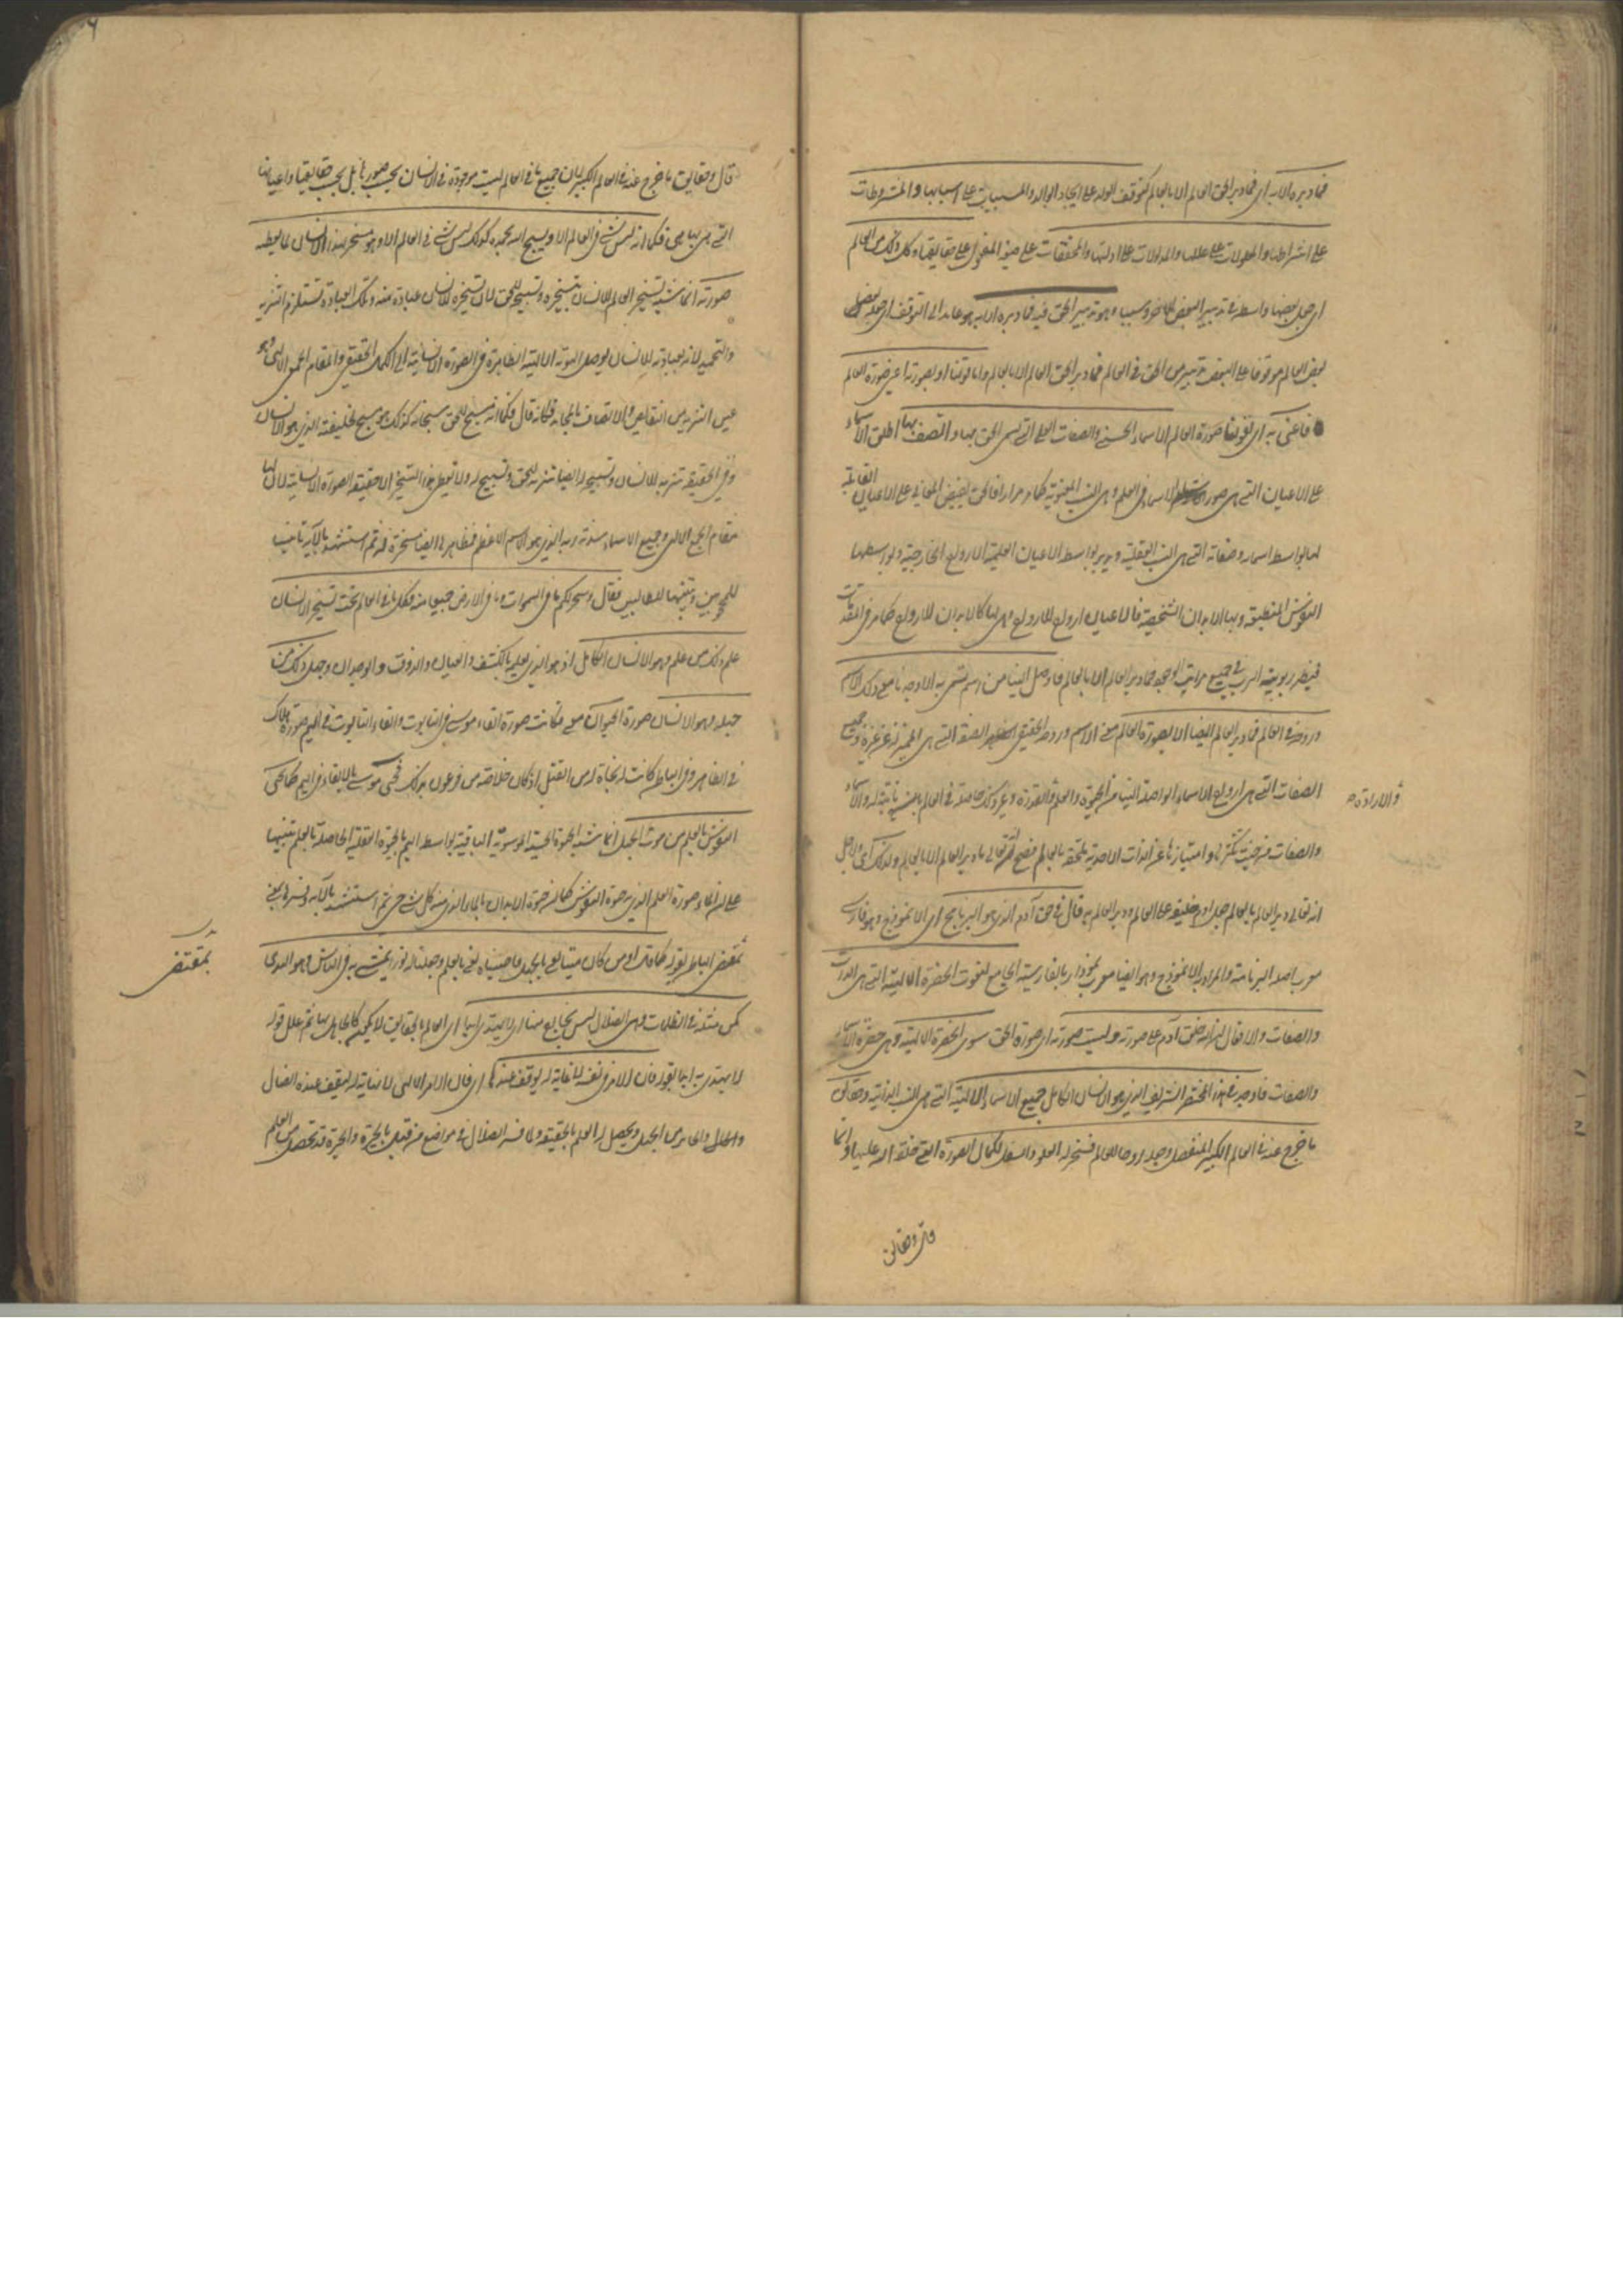 فما دبره الا به اى فما دبر الحق العالم الا بالعالم كتوقف الولد على ايجاد الوالد والمسببات على اسبابها والمشروطات
على اشراطها والمعلولات على عللها والمدلولات على ادلتها والمحققات على حقايقها وكل ذلك من العالم
اى جعل بعضها واسطة فى تدبير البعض الآخر وسببا وهو تدبير الحق فيه فما دبره الا به هو عايد الى التوقف اى جعل بعض
بعض العالم موقوفا على البعض تدبير من الحق فى العالم فما دبر الحق العالم الا بالعالم واما قولنا او بصورته اعنى صورة العالم
فاعنى به اى بقولنا صورة العالم الاسماء الحسنى والصفات العلى التى تسمى الحق بها واتصف بها اطلق الاسماء
على الاعيان التى هى صور الاسماء فى العلم وهى النسب المعنوية كما مر مرارا فالحق يفيض المعانى على الاعيان القابلة
لها بواسطة اسمائه وصفاته التى هى النسب العقلية ويدبر بواسطة الاعيان العلمية الارواح الخارجية وبواسطتها
النفوس المنطبقة وبها الابدان الشخصية فالاعيان ارواح للارواح وهى لها كالابدان للارواح كما مر فى المقدمات
فيظهر ربوبية الرب فى جميع مراتب الوجود فما دبر العالم الا بالعالم فما وصل الينا من اسم تسمى به الا وجدنا معنى ذلك الاسم
وروحه فى العالم فما دبر العالم ايضا الا بصورة العالم معنى الاسم وروحه الحقيقى الصفة التى هى المميزة له عن غيره وجميع
الصفات التى هى ارواح الاسماء الواصلة الينا من الحيوة والعلم والقدرة وغير ذلك حاصلة فى العالم ثابتة له والاسماء
والارادة صح
والصفات من حيث تكثرها وامتيازها عن الذات الاحدية ملحقة بالعالم فصح انه تعالى ما دبر العالم الا بالعالم ولذلك اى ولاجل
انه تعالى دبر العالم بالعالم جعل آدم خليفة على العالم ودبر العالم به قال فى حق آدم الذى هو البرنامج اى الانموذج وهو فارسى
معرب اصله البرنامة والمراد به الانموذج وهو ايضا معرب نموذار بالفارسية الجامع لنعوت الحضرة الالهية التى هى الذات
والصفات والافعال ان الله خلق آدم على صورته وليست صورته اى صورة الحق سوى الحضرة الالهية وهى حضرة الاسماء
والصفات فاوجد فى هذا المختصر الشريف الذى هو الانسان الكامل جميع الاسماء الالهية التى هى النسب الذاتية وحقايق
ما خرج عنه فى العالم الكبير المنفصل وجعله روحا للعالم فسخر له العلو والسفل لكمال الصورة التى خلقه الله عليها وانما
قال وحقايق
قال وحقايق ما خرج عنه فى العالم الكبير لان جميع ما فى العالم ليست موجودة فى الانسان بحسب صورها بل بحسب حقايقها واعيانها
التى هى بها هى فكما انه ليس شئ فى العالم الا ويسبح الله بحمده كذلك ليس شئ فى العالم الا وهو مسخر لهذا الانسان لما يعطيه
صورته انما شبه تسخير العالم للانسان بتسبيحه للحق لان تسخيره للانسان عبادة منه وتلك العبادة تستلزم التنزيه
والتحميد لانه بعبادته للانسان يوصل الهوية الالهية الظاهرة فى الصورة الانسانية الى الكمال الحقيقى والمقام الجمعى الالهى وهو
عين التنزيه من النقايص والاتصاف بالمحامد فكانه قال فكما انه مسبح للحق سبحانه كذلك هو مسبح لخليفته الذى هو الانسان
وفى الحقيقة تنزيهه للانسان وتسبيحه له ايضا تنزيه للحق وتسبيح له ولا يعطى هذا التسخير الا حقيقة الصورة الانسانية لان لها
مقام الجمع الالهى وجميع الاسماء سدنة ربه الذى هو الاسم الاعظم فمظاهرها ايضا مسخرة له ثم استشهد بالآية تانيسا
للمحجوبين وتنبيها للطالبين فقال وسخر لكم ما فى السموات وما فى الارض جميعا منه فكل ما فى العالم تحت تسخير الانسان
علم ذلك من علم وهو الانسان الكامل اذ هو الذى يعلم بالكشف والعيان والذوق والوجدان وجهل ذلك من
جهله وهو الانسان صورة الحيوان معنى فكانت صورة القاء موسى فى التابوت والقاء التابوت فى اليم صورة هلاك
فى الظاهر وفى الباطن كانت له نجاة له من القتل اذ كان خلاصه من فرعون بذلك فحيى موسى بالالقاء فى اليم كما تحيى
النفوس بالعلم من موت الجهل انما شبه الحيوة الحسية الموسوية الباقية بواسطة اليم بالحيوة العقلية الحاصلة بالعلم تنبيها
على ان الماء صورة العلم الذى به حيوة النفوس كما ان حيوة الابدان بالماء الذى منه كل شئ حى ثم استشهد بالآية وفسرها بمعنى
بمقتضى الباطن بقوله كما قال او من كان ميتا يعنى بالجهل فاحييناه يعنى بالعلم وجعلنا له نورا يمشى به فى الناس وهو الهدى
بمقتضى
كمن مثله فى الظلمات وهى الضلال ليس بخارج منها اى لا يهتدى ابدا اى العالم بالحقايق لا يكون كالجاهل بها ثم علل قوله
لا يهتدى به ابدا بقوله فان الامر فى نفسه لا غاية له يوقف عندها اى فان الامر الالهى لا نهاية له ليقف عنده الضال
والحال والحايز من الجهل ويحصل له العلم بالحقيقة ولما فسر الضلال فى مواضع من قبل بالحيرة والحيرة قد تحصل من العلم